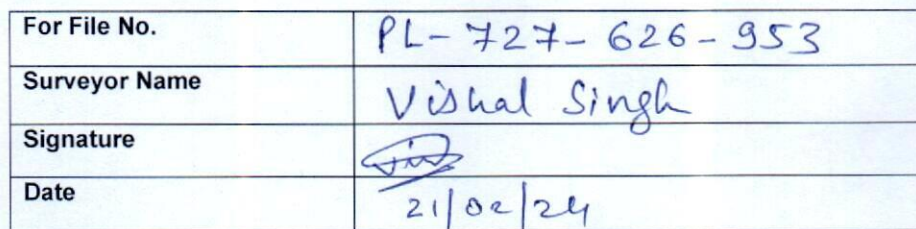 For File No. PL-727-626-953
Surveyor Name Vishal Singh
Signature
Date 21/02/24